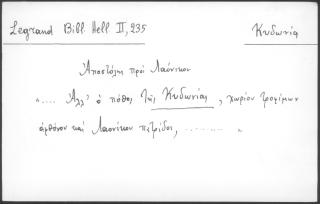 Legrand Bibl Hell II, 235
Κυδωνία
Ἀποστόλη πρὸς Λαόνικον
".... Ἀλλ' ὁ πόθος τῆς Κυδωνίας, χωρίον τροφίμων
ἀφθόνου καὶ Λαονίκου πατρίδος, ......... "